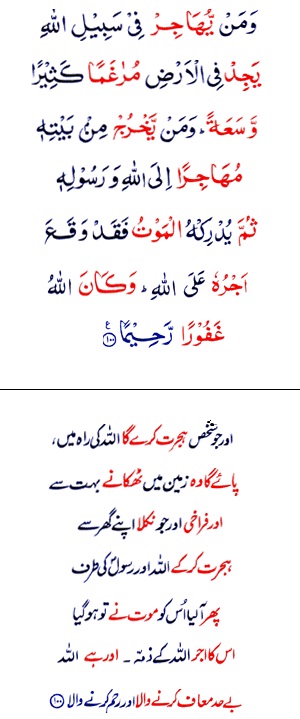 وَمَنْ يُّهَاجِرْ فِيْ سَبِيْلِ اللهِ
يَجِدْ فِي الْاَرْضِ مُرٰغَمًا كَثِيْرًا
وَّسَعَةً ؕ وَمَنْ يَّخْرُجْ مِنْۢ بَيْتِهٖ
مُهَاجِرًا اِلَى اللهِ وَ رَسُوْلِهٖ
ثُمَّ يُدْرِكْهُ الْمَوْتُ فَقَدْ وَقَعَ
اَجْرُهٗ عَلَى اللهِ ؕ وَكَانَ اللهُ
غَفُوْرًا رَّحِيْمًا ۧ ﴿۱۰۰﴾
اور جو شخص ہجرت کرے گا اللہ کی راہ میں،
پائے گا وہ زمین میں ٹھکانے بہت سے
اور فراخی اور جو نکلا اپنے گھر سے
ہجرت کر کے اللہ اور رسولؐ کی طرف
پھر آ لیا اُس کو موت نے تو ہو گیا
اس کا اجر اللہ کے ذمّہ ۔ اور ہے اللہ
بے حد معاف کرنے والا اور رحم کرنے والا ﴿۱۰۰﴾